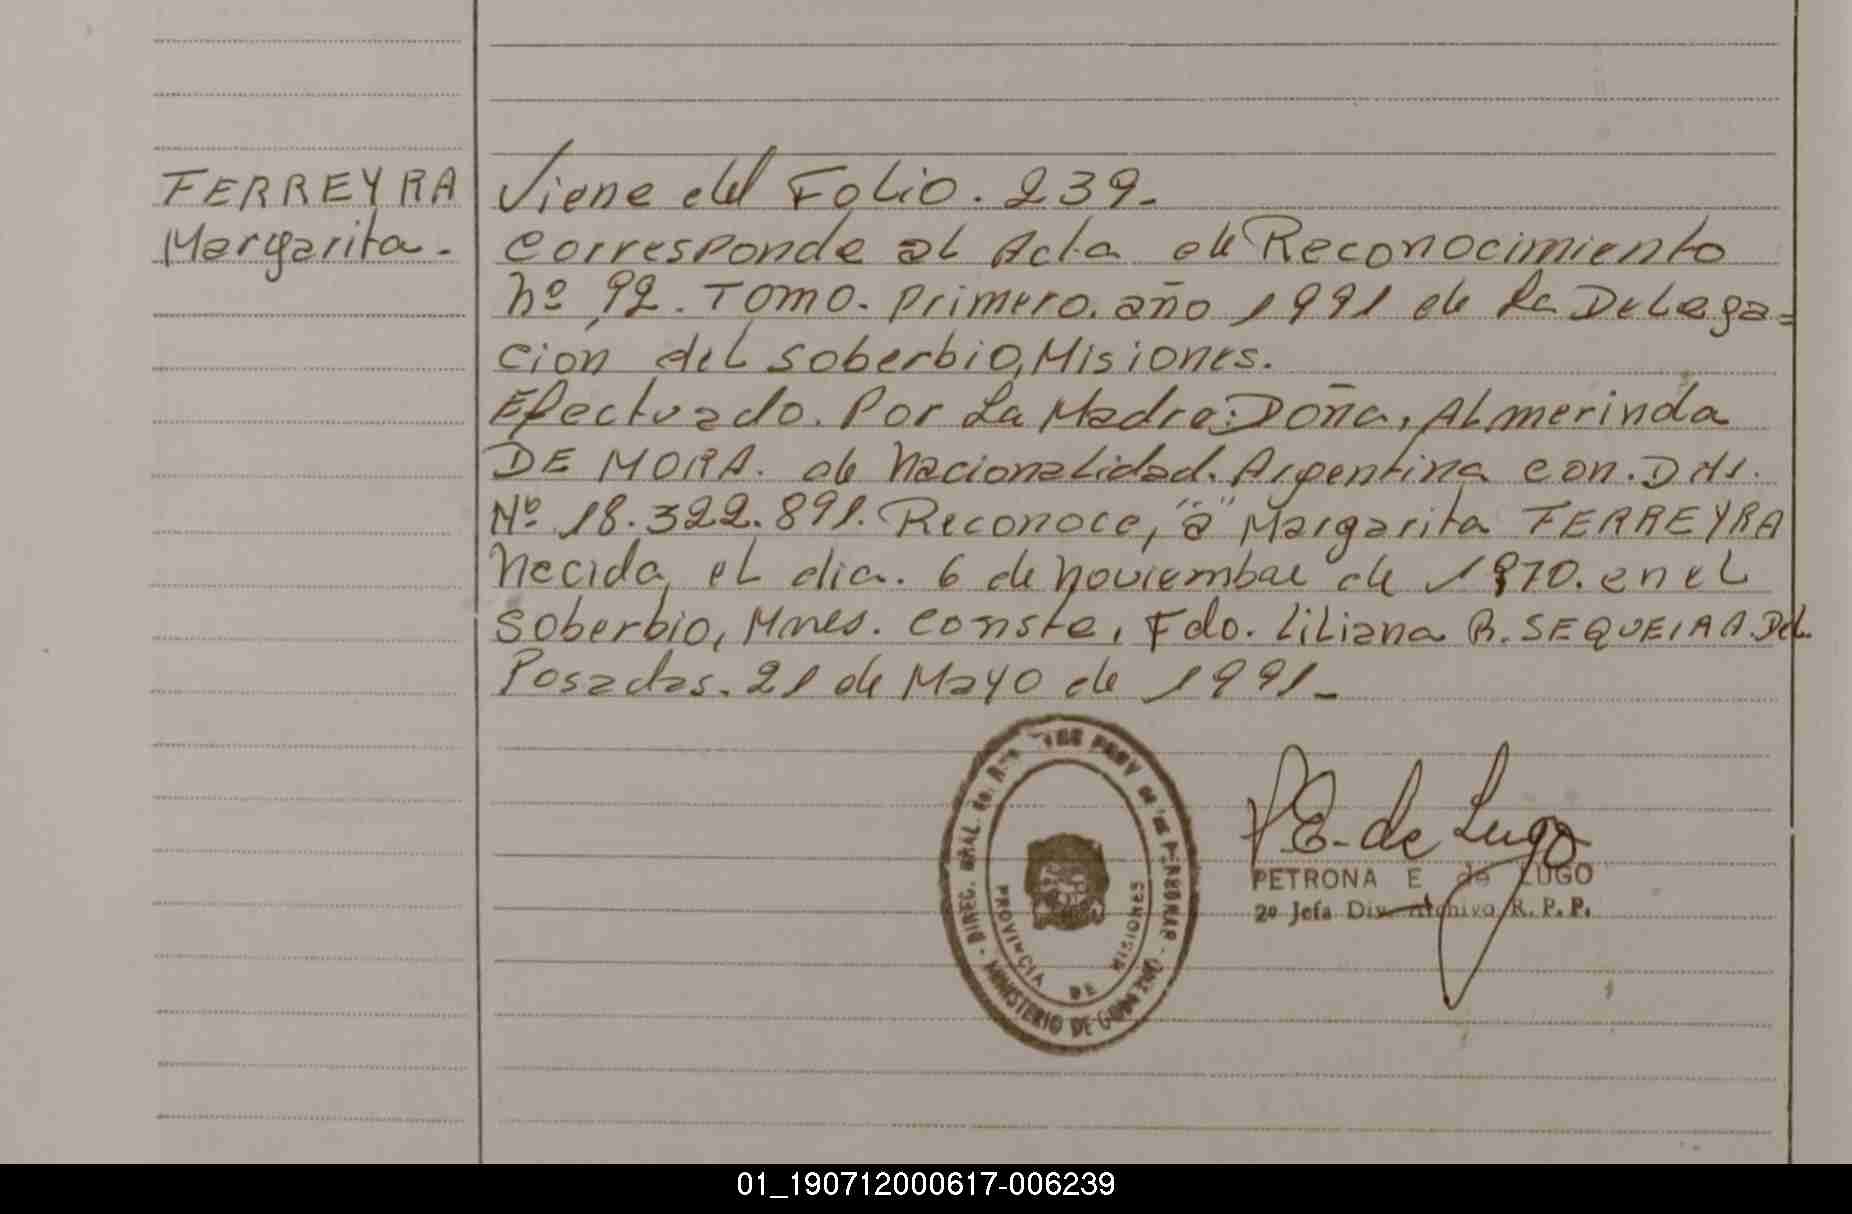 FERREYRA
Margarita.
Viene del Folio. 239.
Corresponde al Acta de Reconocimiento
Nº 92. Tomo. primero. año 1991 de la Delega=
cion del Soberbio, Misiones.
Efectuado. Por La Madre: Doña, ALmerinda
DE MORA. de Nacionalidad. Argentina con. DNI.
Nº 18.322.891. Reconoce, "a" Margarita FERREYRA
Necida, el dia. 6 de Noviembre de 1970. en el
Soberbio, Mnes. Conste, Fdo. Liliana B. SEQUEIRA. Del.
Posadas. 21 de Mayo de 1991.
DIREC. GRAL. DE PROV DE LAS PERSONAS - MINISTERIO DE GOBIERNO
PROVINCIA DE MISIONES
P. E. de Lugo
PETRONA E de LUGO
2º Jefa Div. Archivo R. P. P.
01_190712000617-006239